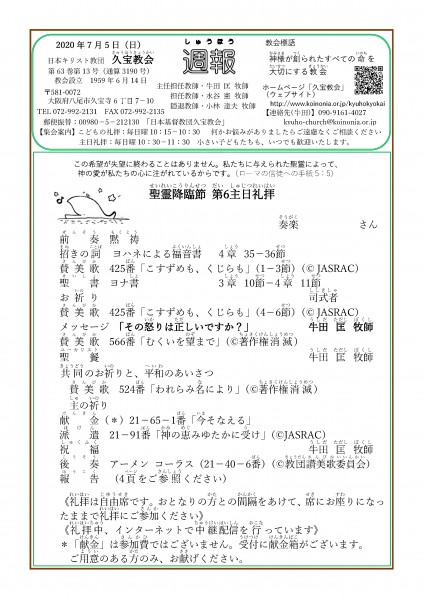 2020年7月5日（日）
日本キリスト教団 久宝教会
第63巻第13号（通算3190号）
教会設立 1959年6月14日
週報
教会標語
神様が創られたすべての命を
大切にする教会
主任担任教師・牛田 匡 牧師
担任教師・水谷 憲 牧師
隠退教師・小林 達夫 牧師
〒581-0072
大阪府八尾市久宝寺6丁目7−10
TEL 072-992-2131 FAX 072-992-2135
ホームページ「久宝教会」
（ウェブサイト）
http://www.koinonia.or.jp/kyuhokyokai
【連絡先(牛田)】090-9161-4027
郵便振替：00980−5−212130「日本基督教団久宝教会」
kyuho-church@koinonia.or.jp
【集会案内】こどもの礼拝：毎日曜10：15−10：30 何かお悩みがありましたらご遠慮なくご相談ください
主日礼拝：毎日曜10：30−11：30 小さい子どもたちも、いつでも歓迎いたします。
この希望が失望に終わることはありません。私たちに与えられた聖霊によって、
神の愛が私たちの心に注がれているからです。（ローマの信徒への手紙5：5）
聖霊降臨節 第6主日礼拝
奏楽 さん
前奏 黙祷
招きの詞 ヨハネによる福音書 4章 35−36節
賛美歌 425番「こすずめも、くじらも」（1−3節）（© JASRAC）
聖書 ヨナ書 3章 10節−4章 11節
お祈り 司式者
賛美歌 425番「こすずめも、くじらも」（4−6節）（© JASRAC）
メッセージ 「その怒りは正しいですか？」 牛田 匡 牧師
賛美歌 566番「むくいを望まで」（©著作権消滅）
聖餐 牛田 匡 牧師
共同のお祈りと、平和のあいさつ
賛美歌 524番「われらみ名により」（©著作権消滅）
主の祈り
献金（＊）21−65−1番「今そなえる」
派遣 21−91番「神の恵みゆたかに受け」（©JASRAC）
祝福 牛田 匡 牧師
後奏 アーメン コーラス（21−40−6番）（©教団讃美歌委員会）
報告 （4頁をご参照ください）
《礼拝は自由席です。おとなりの方との間隔をあけて、席にお座りになっ
たままで礼拝にご参加ください》
《礼拝中、インターネットで中継配信を行っています》
＊「献金」は参加費ではございません。受付に献金箱がございます。
ご用意のある方のみ、お献げください。